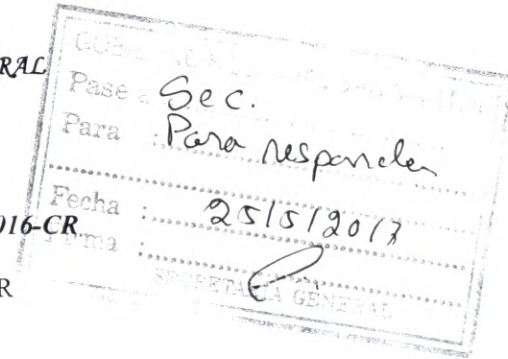 RAL
Pase a Sec.
Para : Para responder
Fecha : 25/5/2017
016-CR
Firma :
R
SECRETARIA GENERAL